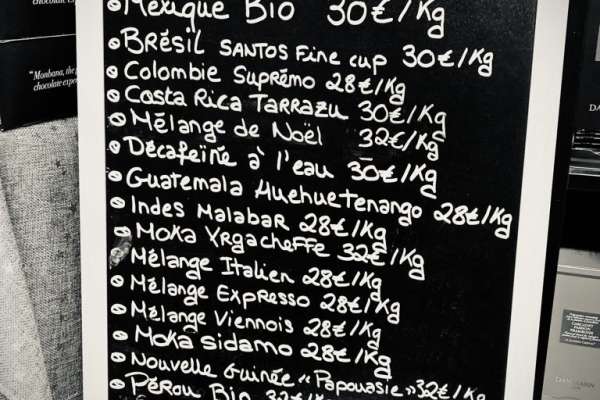 Mexique Bio 30€/Kg
Brésil SANTOS Fine cup 30€/Kg
Colombie Suprêmo 28€/Kg
Costa Rica Tarrazu 30€/Kg
Mélange de Noël 32€/Kg
Décafeïné à l'eau 30€/Kg
Guatemala Huehuetenango 28€/Kg
Indes Malabar 28€/Kg
Moka Yrgacheffe 32€/Kg
Mélange Italien 28€/Kg
Mélange Expresso 28€/Kg
Mélange Viennois 28€/Kg
Moka Sidamo 28€/Kg
Nouvelle Guinée "Papouasie" 32€/Kg
Pérou Bio 32€/Kg
"Monbana, the
chocolate expe
DA